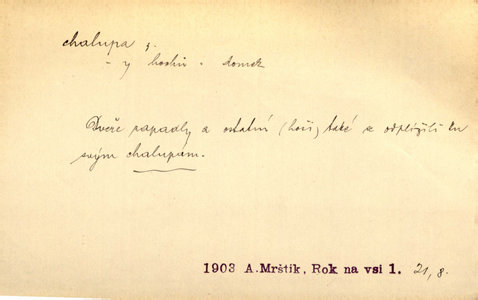 chalupa ž.
- y hoshi - domek
Dveře zapadly a ostatní (hoši) také se odplížili ku
svým chalupám.
1903 A. Mrštík, Rok na vsi 1. 21, 8.